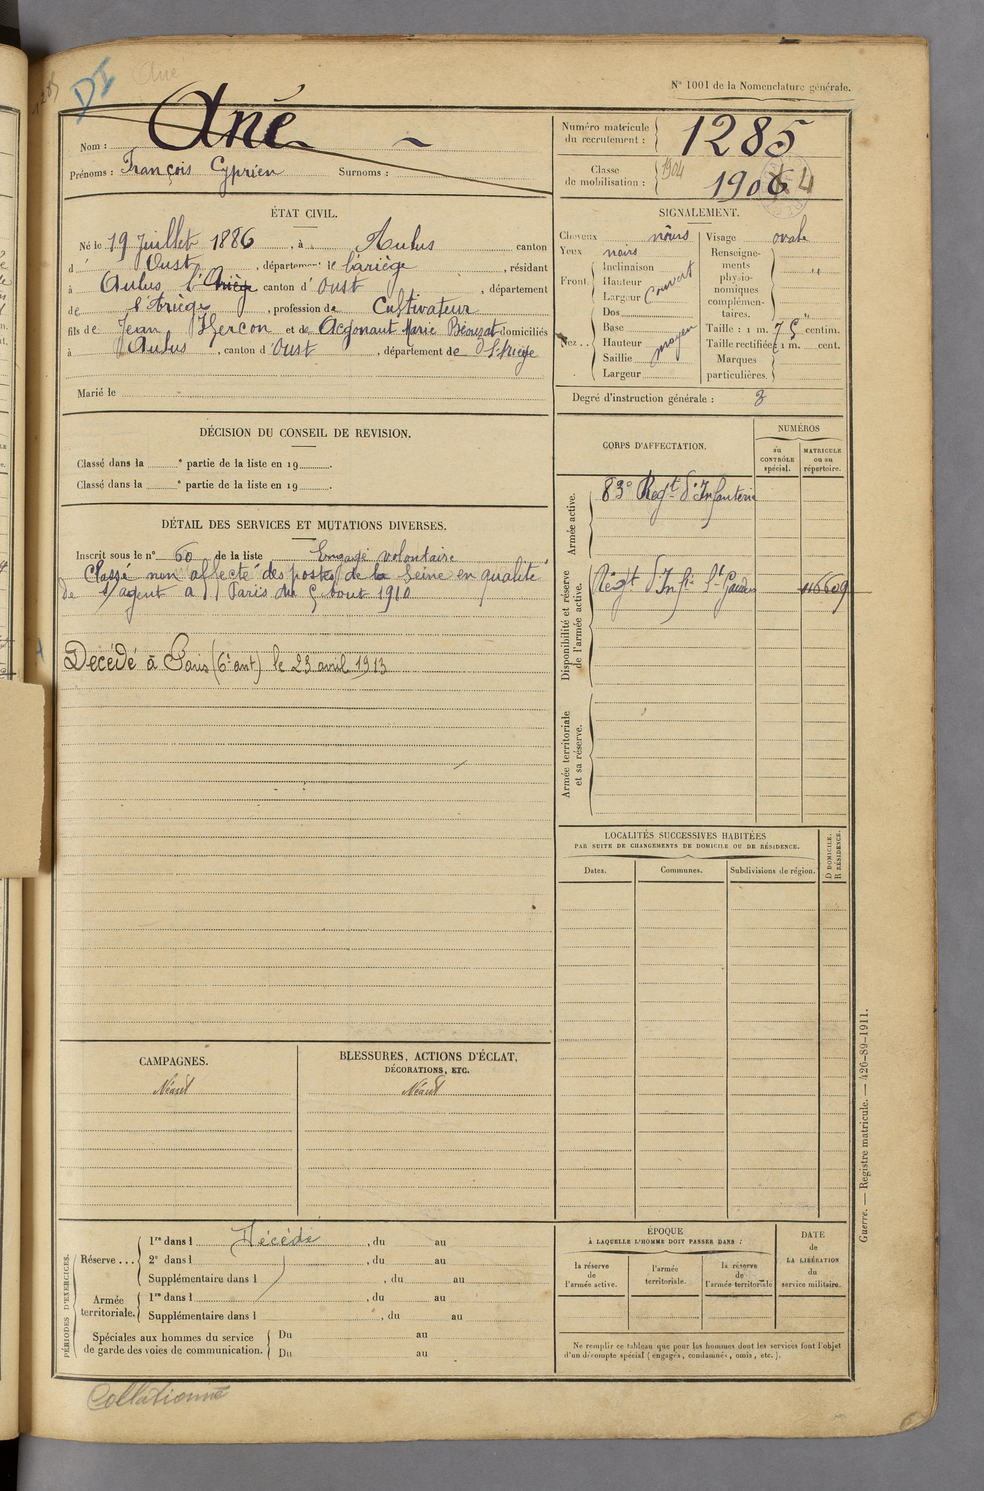 DI
Ané
N° 1001 de la Nomenclature générale.
Nom : Ané
Prénoms : François Cyprien Surnoms :
Numéro matricule du recrutement : 1285
Classe de mobilisation : 1904 1906 4
ÉTAT CIVIL.
Né le 19 Juillet 1886, à Aulus canton
d' Oust, département de l'ariège, résidant
à Aulus l'Ariège canton d'Oust, département
de l'Ariège, profession de Cultivateur
fils de Jean et de Marie domiciliés
à Aulus, canton d'Oust, département de l'Ariège
Marié le
SIGNALEMENT.
Cheveux noirs
Yeux noirs
Front. Inclinaison
Hauteur
Largeur
couvert
Nez. Dos
Base
Hauteur
Saillie
Largeur
moyen
Visage ovale
Renseignements physionomiques complémentaires. "
Taille : 1 m. 75 centim.
Taille rectifiée : 1 m. cent.
Marques particulières.
Degré d'instruction générale : 3
DÉCISION DU CONSEIL DE REVISION.
Classé dans la e partie de la liste en 19 .
Classé dans la e partie de la liste en 19 .
DÉTAIL DES SERVICES ET MUTATIONS DIVERSES.
Inscrit sous le n° 60 de la liste Engagé volontaire
Classé "non affecté" des postes de la Seine en qualité
de s/agent à Paris du 5 août 1910
Décédé à Paris (6e arrt) le 23 avril 1913
CORPS D'AFFECTATION.
NUMÉROS
au CONTRÔLE spécial.
MATRICULE ou au répertoire.
Armée active.
83e Regt d'Infanterie
Disponibilité et réserve de l'armée active.
Régt d'Infie St Gaudens
Armée territoriale et sa réserve.
LOCALITÉS SUCCESSIVES HABITÉES
PAR SUITE DE CHANGEMENTS DE DOMICILE OU DE RÉSIDENCE.
Dates. Communes. Subdivisions de région.
D DOMICILE.
R RÉSIDENCE.
CAMPAGNES.
Néant
BLESSURES, ACTIONS D'ÉCLAT,
DÉCORATIONS, ETC.
Néant
PÉRIODES D'EXERCICES.
Réserve ... 1re dans l Décédé, du au
2e dans l , du au
Supplémentaire dans l , du au
Armée territoriale. 1re dans l , du au
Supplémentaire dans l , du au
Spéciales aux hommes du service de garde des voies de communication. Du au
Du au
ÉPOQUE
À LAQUELLE L'HOMME DOIT PASSER DANS :
la réserve de l'armée active.
l'armée territoriale.
la réserve de l'armée territoriale
DATE de LA LIBÉRATION du service militaire.
Ne remplir ce tableau que pour les hommes dont les services font l'objet
d'un décompte spécial (engagés, condamnés, omis, etc.).
Guerre. — Registre matricule. — 426-89-1911.
Collationné